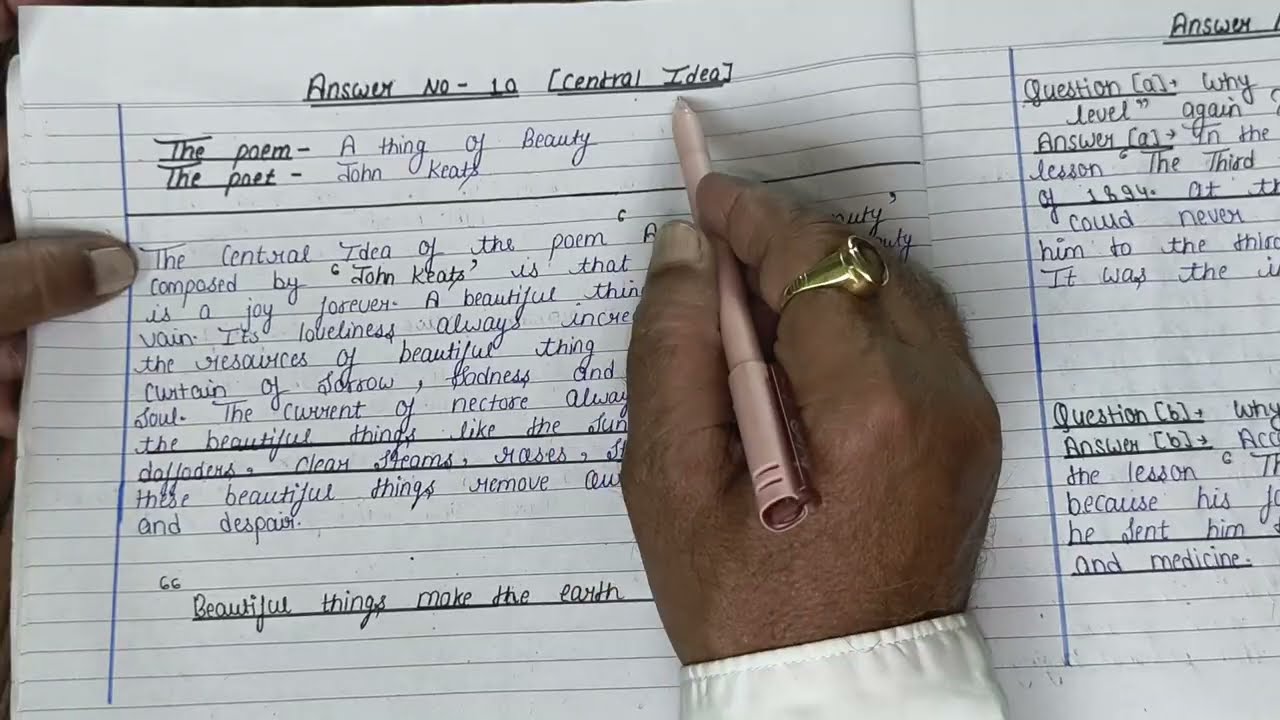 Answer No - 10 [Central Idea]
The poem - A thing of Beauty
The poet - John Keats
The Central Idea of the poem ‘A
composed by ‘John Keats’ is that
is a joy forever. A beautiful thin
vain. Its loveliness always incre
the resairces of beautiful thing
curtain of sorrow, sadness and
soul. The current of nectore alway
the beautiful things like the sun
daffoders, clear steams, roses, s
these beautiful things remove our
and despair.
“ Beautiful things make the earth
Answer
Question [a]→ Why
level” again
Answer [a]→ In the
lesson ‘The Third
of 1894. at th
could never
him to the third
It was the i
Question [b]→ Why
Answer [b]→ Acc
the lesson ‘ Th
because his f
he sent him
and medicine.